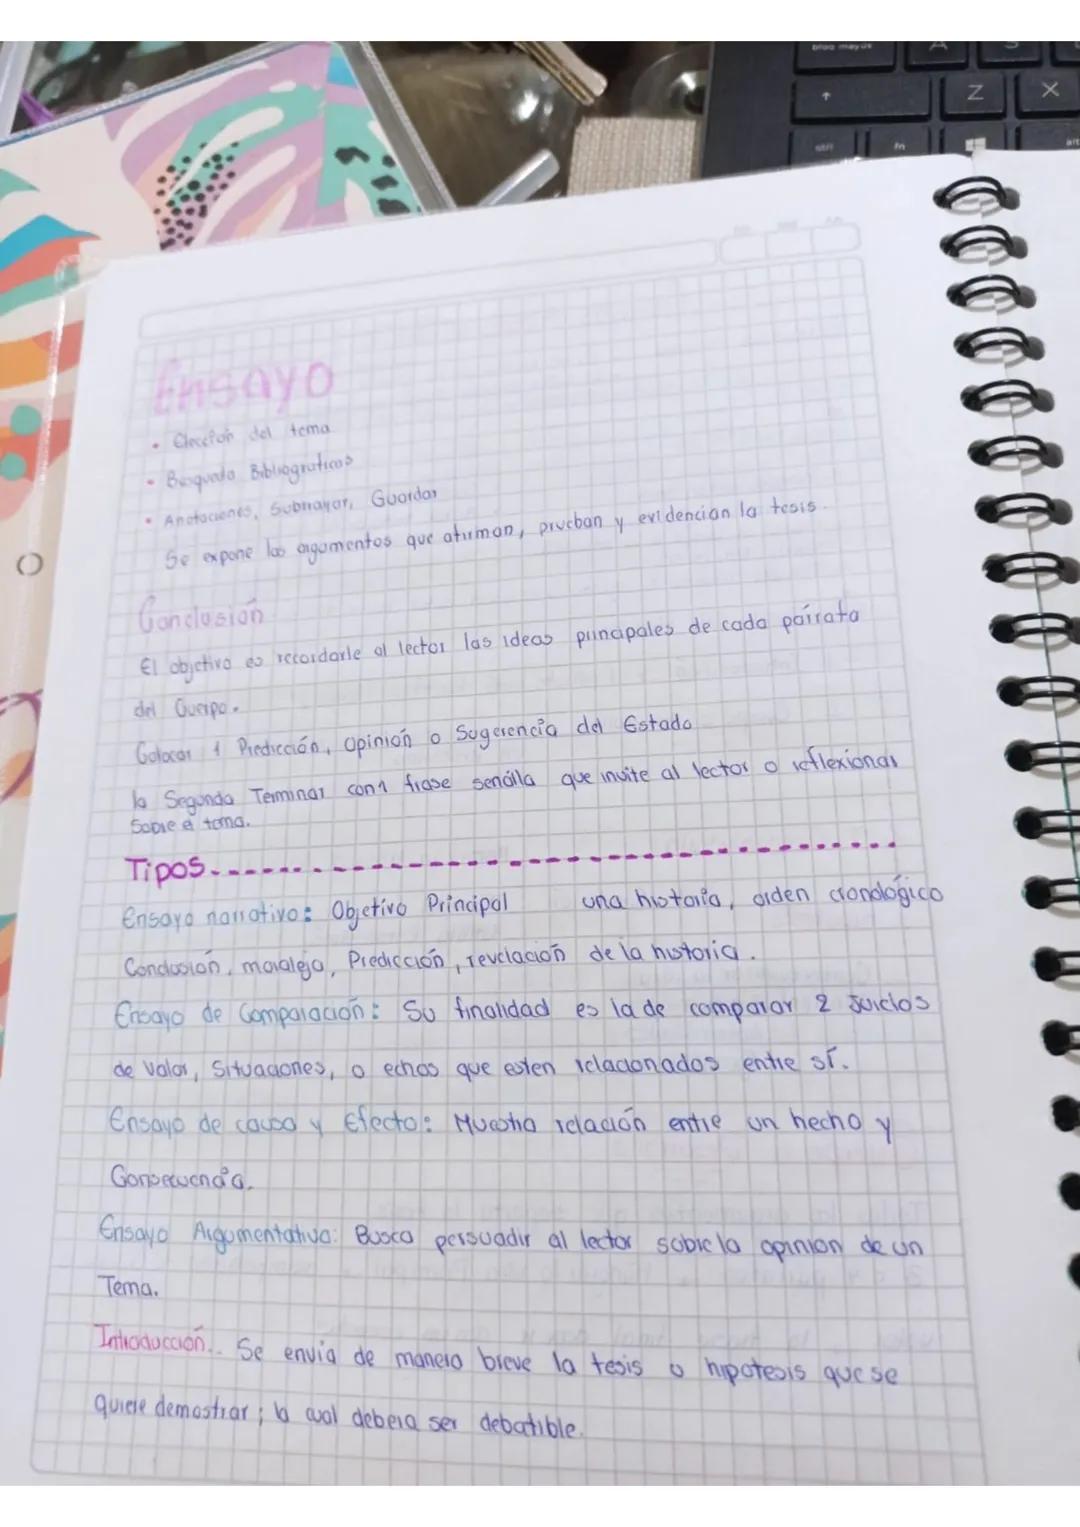 bloq mayús
A
S
Z
X
ctrl
fn
alt
Ensayo
• Elección del tema
• Busqueda Bibliograficas
• Anotaciones, Subrrayar, Guardar
Se expone los argumentos que afirman, prueban y evidencian la tesis.
Conclusión
El objetivo es recordarle al lector las ideas principales de cada párrafo
del Cuerpo.
Colocar 1 Predicción, Opinión o Sugerencia del Estado
la Segunda Terminar con 1 frase sencilla que invite al lector o reflexionar
Sobre el tema.
Tipos
Ensayo narrativo: Objetivo Principal una historia, orden cronológico
Conclusión, moraleja, Predicción, revelación de la historia.
Ensayo de Comparación: Su finalidad es la de comparar 2 Juicios
de Valor, Situaciones, o echos que esten relacionados entre sí.
Ensayo de causa y Efecto: Muestra relación entre un hecho y
Consecuencia.
Ensayo Argumentativo: Busca persuadir al lector sobre la opinion de un
Tema.
Introducción.. Se envia de manera breve la tesis o hipotesis que se
quiere demostrar; la cual debera ser debatible.